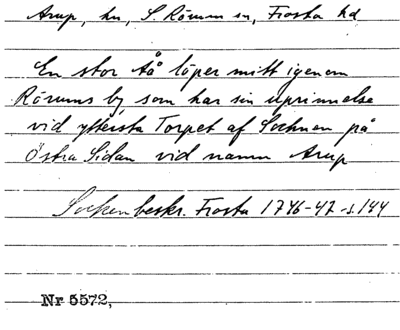 Arup, hn, S. Rörum sn, Frosta hd
En stor Å löper mitt igenom
Rörums by som har sin uprinnelse
vid yttersta Torpet af Sochnen på
Östra Sidan vid namn Arup
Sockenbeskr. Frosta 1746-47 s. 144
Nr 5572,